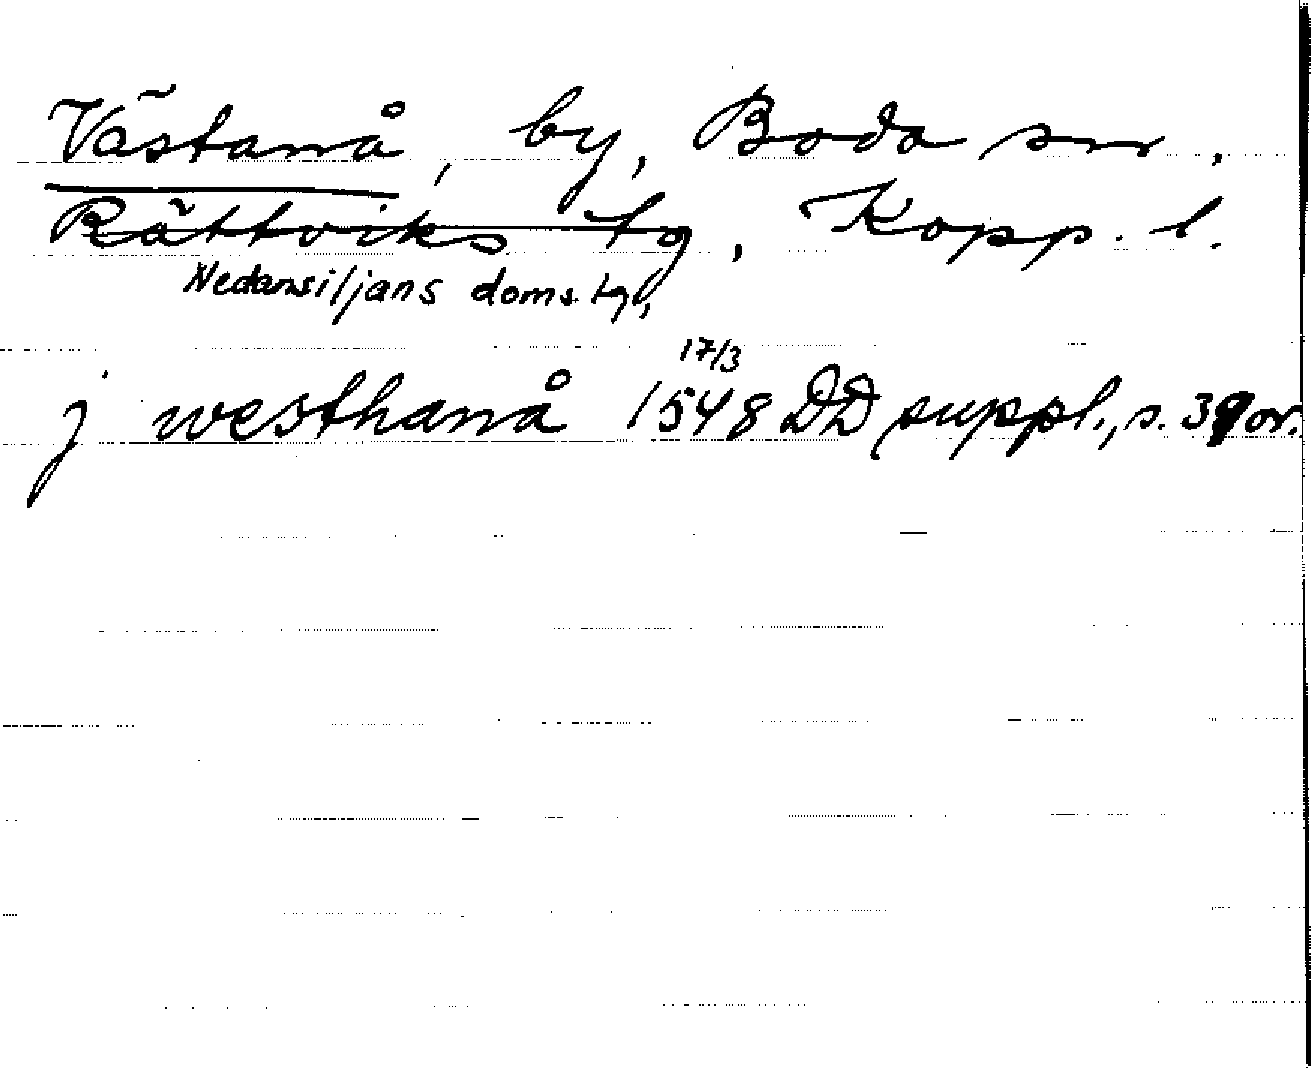 Västanå, by, Boda sn,
Rättviks tg, Kopp. l.
Nedansiljans doms. tg,
17/3
j westhanå 1548 DD suppl., s. 39 or.